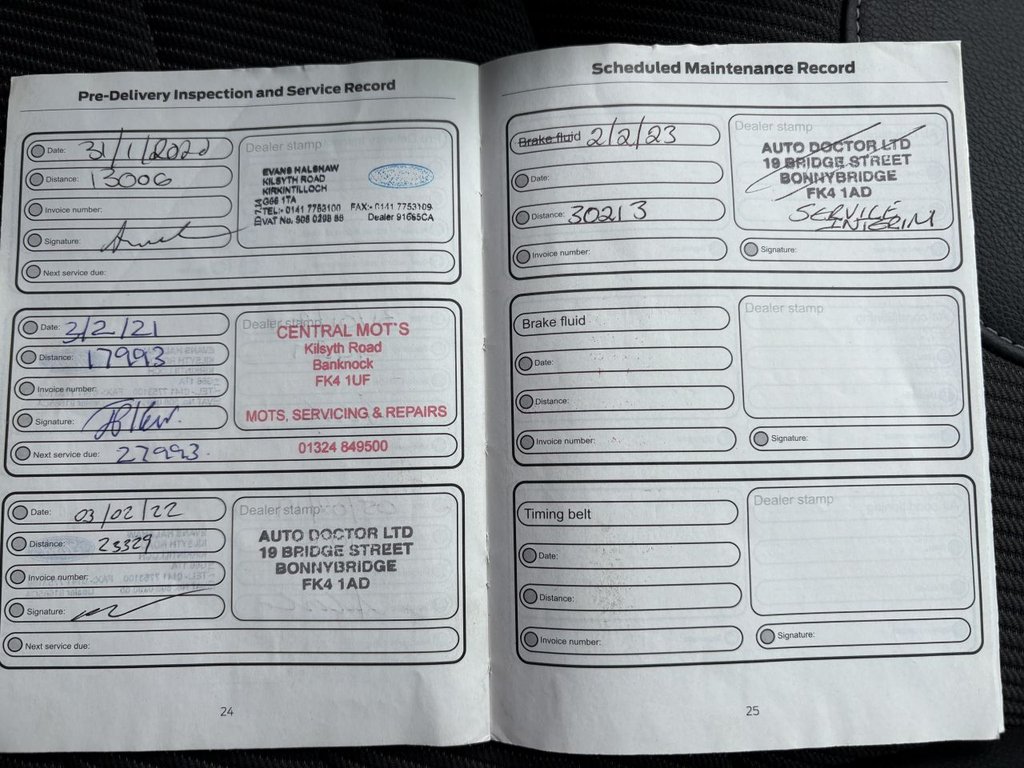 Pre-Delivery Inspection and Service Record
Date: 31/1/2020
Distance: 13006
Invoice number:
Signature:
Next service due:
Dealer stamp
EVANS HALSHAW
KILSYTH ROAD
KIRKINTILLOCH
G66 1TA
TEL:- 0141 7753100 FAX:- 0141 7753109
VAT No.
Dealer 91665CA
Date: 3/2/21
Distance: 17993
Invoice number:
Signature:
Next service due: 27993.
Dealer stamp
CENTRAL MOT'S
Kilsyth Road
Banknock
FK4 1UF
MOTS, SERVICING & REPAIRS
01324 849500
Date: 03/02/22
Distance: 23329
Invoice number:
Signature:
Next service due:
Dealer stamp
AUTO DOCTOR LTD
19 BRIDGE STREET
BONNYBRIDGE
FK4 1AD
24
Scheduled Maintenance Record
Brake fluid 2/2/23
Date:
Distance: 30213
Invoice number:
Dealer stamp
AUTO DOCTOR LTD
19 BRIDGE STREET
BONNYBRIDGE
FK4 1AD
SERVICE
INTERIM
Signature:
Brake fluid
Date:
Distance:
Invoice number:
Dealer stamp
Signature:
Timing belt
Date:
Distance:
Invoice number:
Dealer stamp
Signature:
25